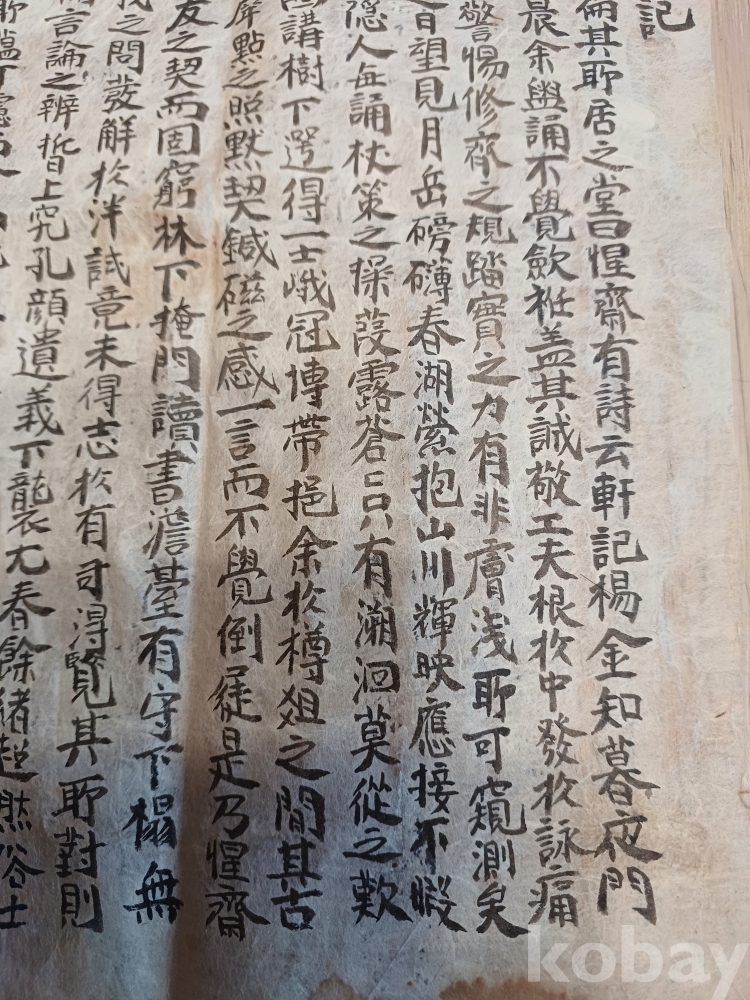 記
爾其所居之堂曰惺齋有詩云軒記楊金知暮夜門
晨余輿誦不覺歛袵盖其誠敬工夫根於中發於詠痛
警惕修齊之規踏實之力有非膚淺所可窺測矣
日望見月岳磅礴春湖縈抱山川輝映應接不暇
隐人每誦杖策之操葭露蒼〻只有溯洄莫從之歎
講樹下邂得一士峨冠博帶挹余於樽俎之間其古
犀點之照默契鍼磁之感一言而不覺倒屣是乃惺齋
友之契而固窮林下掩門讀書澹臺有守下榻無
之問發解於泮試竟未得志於有司淂覽其所對則
言論之辨晳上究孔顔遺義下襲尤春餘緒超然俗士
kobay